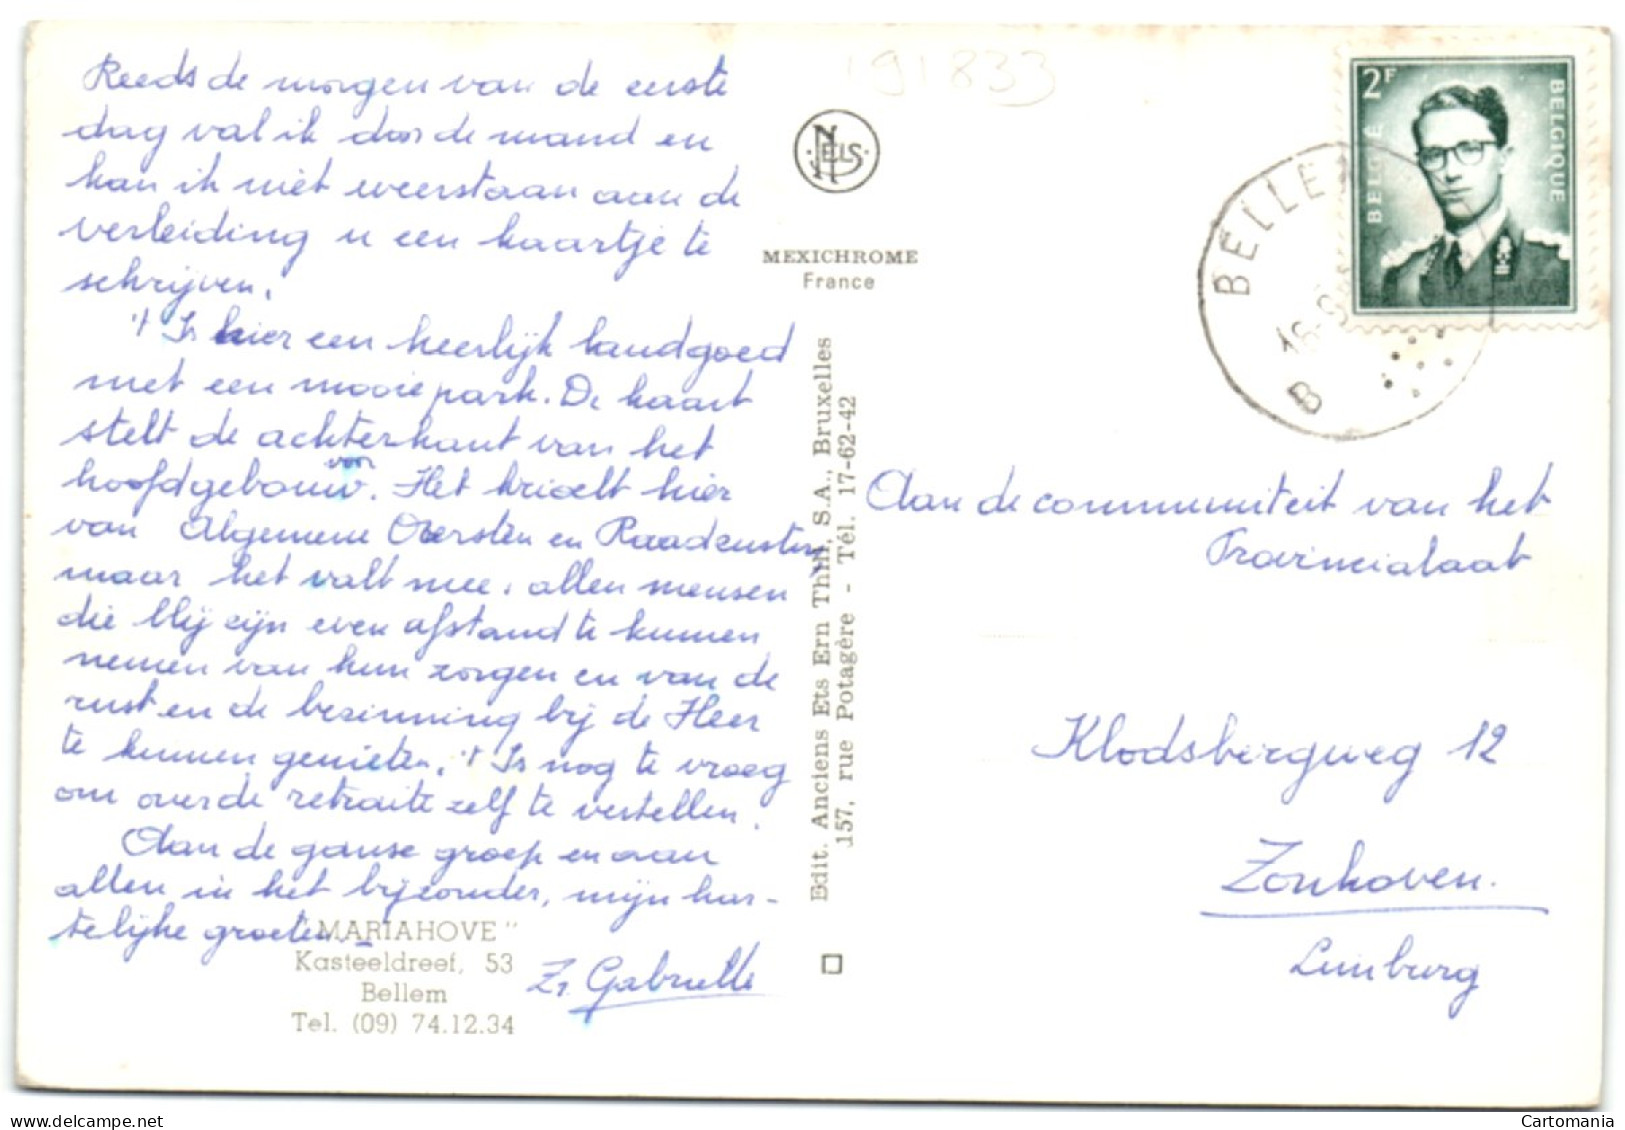 Reeds de morgen van de eerste
dag val ik door de mand en
kan ik niet weerstaan aan de
verleiding u een kaartje te
schrijven.
't Is hier een heerlijk landgoed
met een mooie park. De kaart
stelt de achterkant van het
hoofdgebouw voor. Het krioelt hier
van Algemene Oversten en Raadensten,
maar het valt mee: allen mensen
die blij zijn even afstand te kunnen
nemen van hun zorgen en van de
rust en de bezinning bij de Heer
te kunnen genieten. 't Is nog te vroeg
om over de retraite zelf te vertellen.
Aan de ganse groep en aan
allen in het bijzonder, mijn har-
telijke groeten.
Zr Gabrielle
"MARIAHOVE"
Kasteeldreef, 53
Bellem
Tel. (09) 74.12.34
191833
NELS
MEXICHROME
France
Edit. Anciens Ets Ern Thill, S.A., Bruxelles
157, rue Potagère - Tél. 17-62-42
2F
BELGIË
BELGIQUE
BELLEM
16-9
B
Aan de communiteit van het
Provincialaat
Klodsbergweg 12
Zonhoven.
Limburg
Cartomania